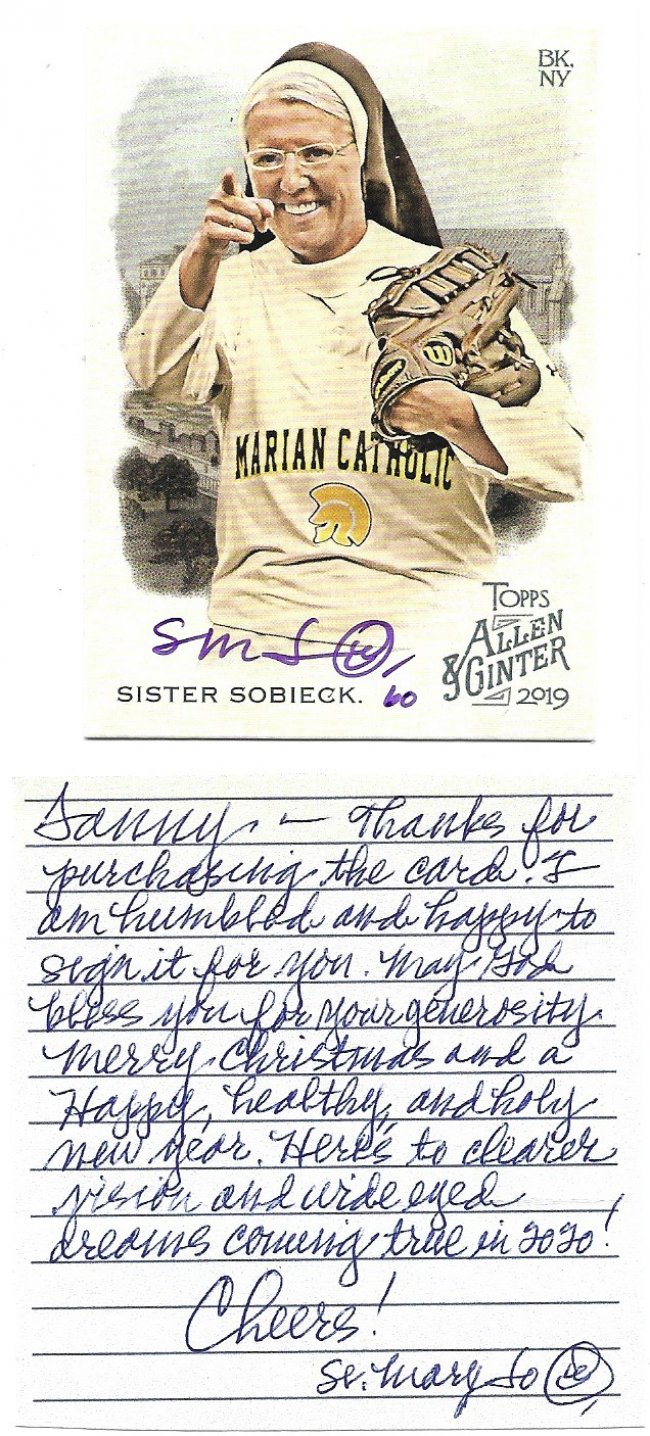 BK,
NY
MARIAN CATHOLIC
SMJ
60
TOPPS
ALLEN
& GINTER
2019
SISTER SOBIECK.
Danny, - Thanks for
purchasing the card. I
am humbled and happy to
sign it for you. May God
bless you for your generosity.
Merry Christmas and a
Happy, healthy, and holy
new year. Here's to clearer
vision and wide eyed
dreams coming true in 2020!
Cheers!
Sr. Mary Jo